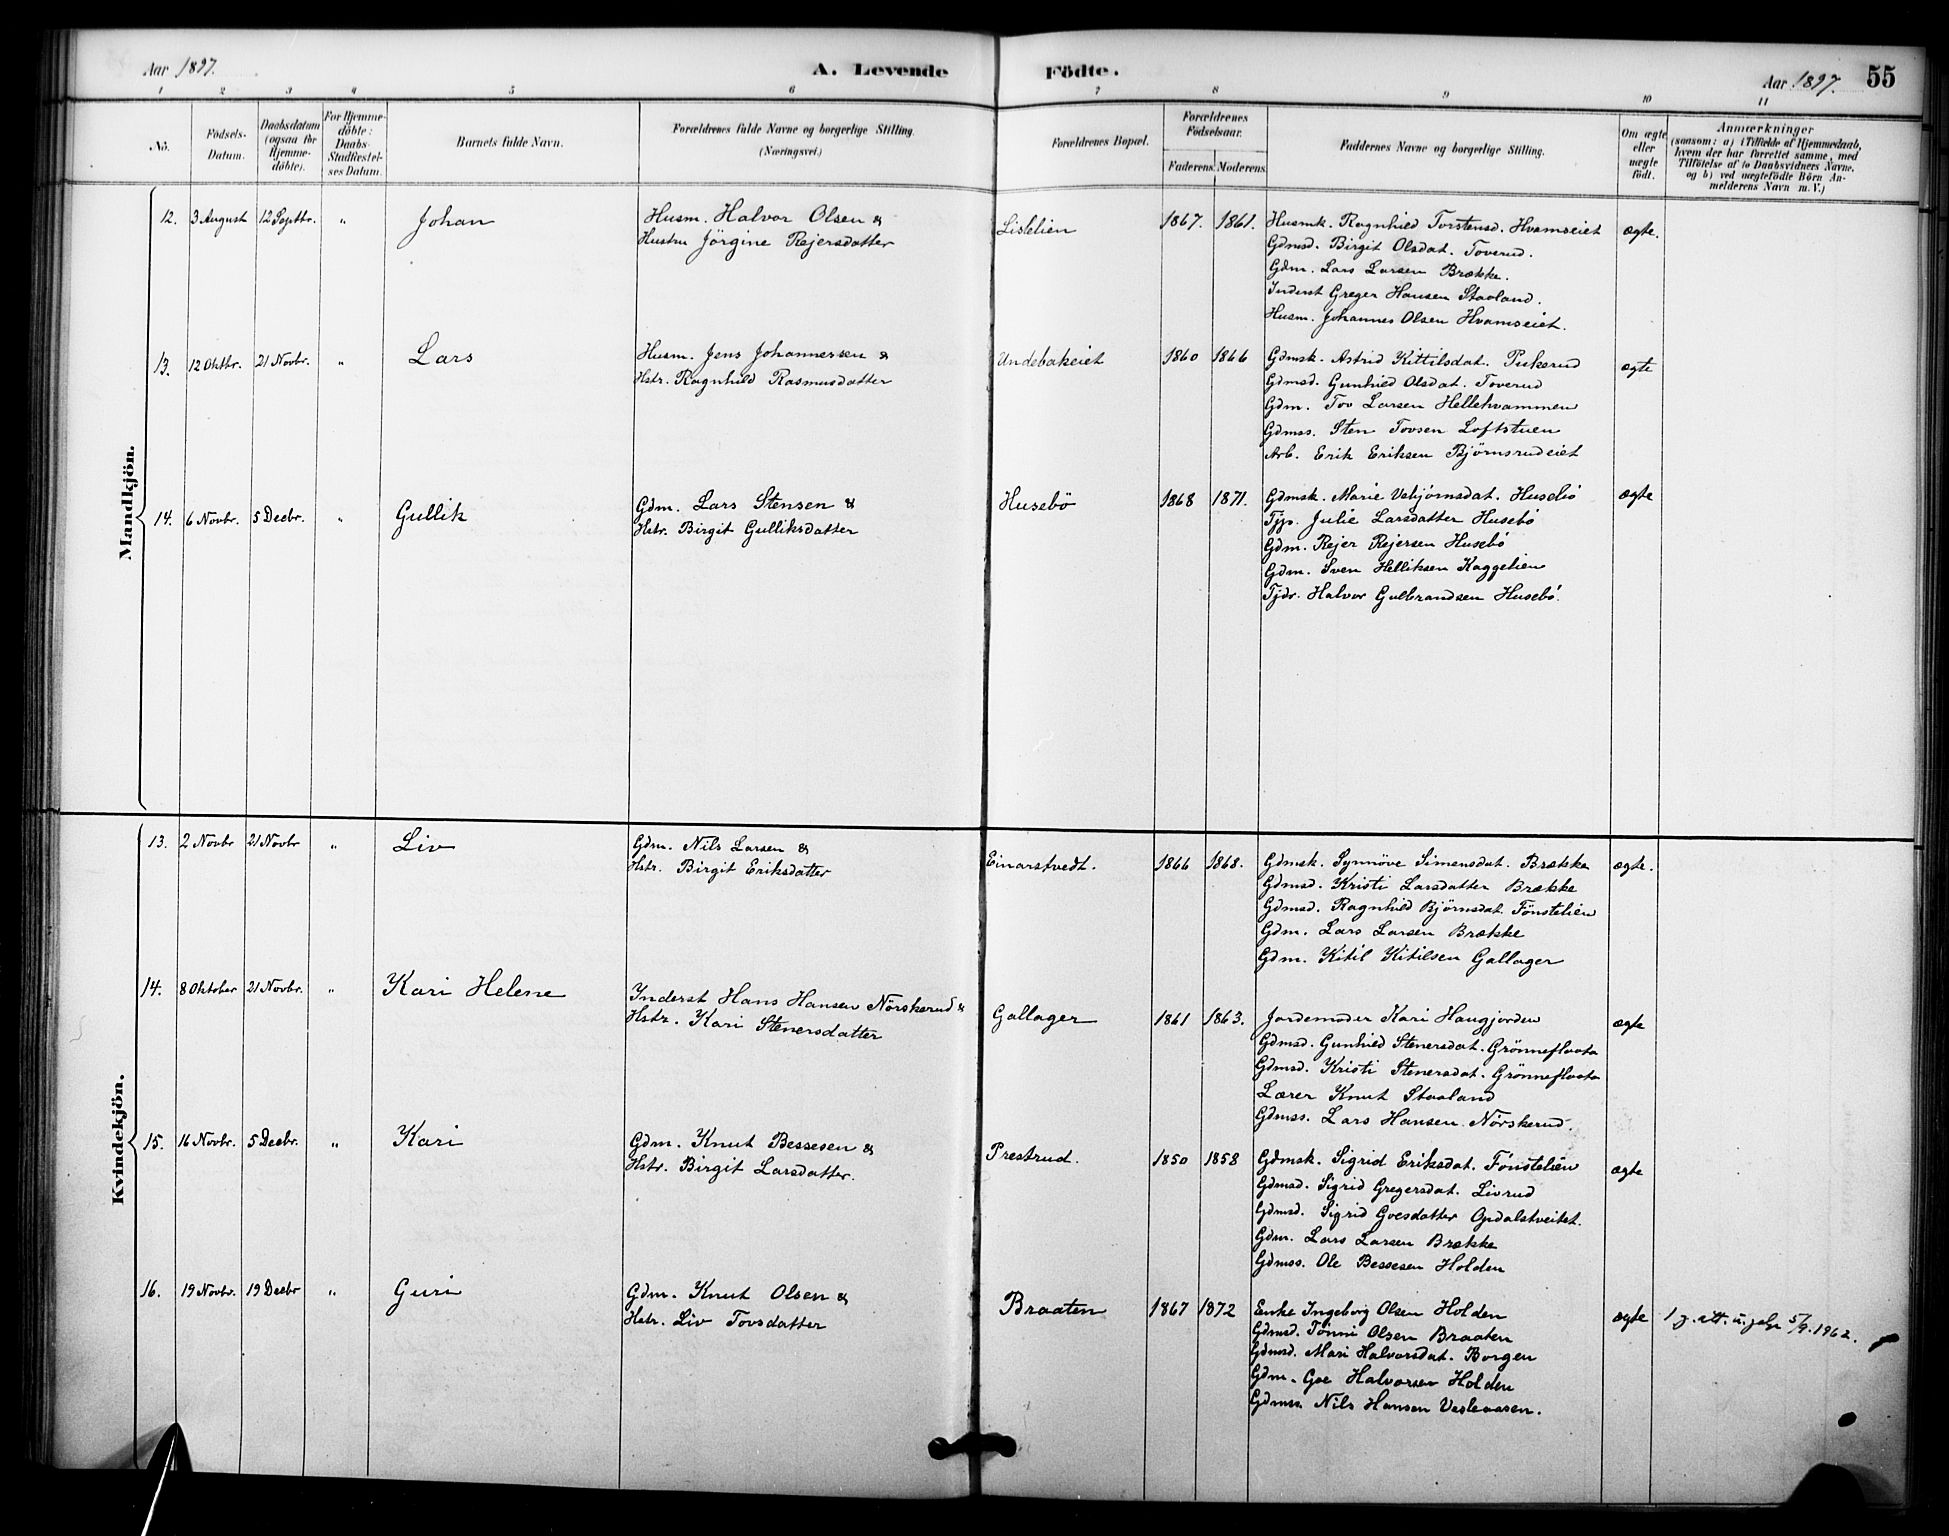 Aar 1897.
A. Levende Födte.
Aar 1897.
55
1 2 3 4 5 6 7 8 9 10 11
No.
Födsels-Datum.
Daabsdatum (ogsaa for Hjemme-döbte).
For Hjemme-döbte: Daabs-Stadfæstel-ses Datum.
Barnets fulde Navn.
Forældrenes fulde Navne og borgerlige Stilling. (Næringsvei.)
Forældrenes Bopæl.
Forældrenes Födselsaar.
Faderens. Moderens.
Faddernes Navne og borgerlige Stilling.
Om ægte eller uægte födt.
Anmærkninger
(saasom: a) i Tilfælde af Hjemmedaab,
hvem der har forrettet samme, med
Tilföielse af to Daabsvidners Navne,
og b) ved uægtefödte Börn An-
melderens Navn m. V.)
Mandkjön.
12. 3 August 12 Septbr. " Johan
Husm. Halvor Olsen &
Hustru Jörgine Rejersdatter
Lislelien 1867. 1861.
Husmk. Ragnhild Torstensd. Hvamseiet
Gdmsd. Birgit Olsdat. Toverud.
Gdm. Lars Larsen Brække.
Inderst Greger Hansen Staaland.
Husm. Johannes Olsen Hvamseiet.
ægte.
13. 12 Oktbr. 21 Novbr. " Lars
Husm. Jens Johannessen &
Hstr. Ragnhild Rasmusdatter
Undebakeiet 1860 1866
Gdmsk. Astrid Kittilsdat. Pukerud
Gdmsd. Gunhild Olsdat. Toverud
Gdm. Tov Larsen Hellehvammen
Gdmss. Sten Tovsen Loftstuen
Arb. Erik Eriksen Bjørnsrudeiet
ægte
14. 6 Novbr. 5 Decbr. " Gullik
Gdm. Lars Stensen &
Hstr. Birgit Gulliksdatter
Husebö 1868 1871.
Gdmsk. Marie Vebjørnsdat. Husebö
Tjp. Julie Larsdatter Husebö
Gdm. Rejer Rejersen Husebö
Gdm. Sven Helliksen Kaggelien
Tjdr. Halvor Gulbrandsen Husebö.
ægte
Kvindekjön.
13. 2 Novbr 21 Novbr " Liv
Gdm. Nils Larsen &
Hstr. Birgit Eriksdatter
Einarstvedt. 1866 1868.
Gdmsk. Synnöve Simensdat. Brække
Gdmsd. Kristi Larsdatter Brække
Gdmsd. Ragnhild Bjørnsdat. Fönstelien
Gdm. Lars Larsen Brække
Gdm. Kitil Kitilsen Gallager
ægte.
14. 8 Oktober 21 Novbr. " Kari Helene
Inderst Hans Hansen Nörskerud &
Hstr. Kari Stenersdatter
Gallager 1861 1863.
Jordemoder Kari Haugjorden
Gdmsd. Gunhild Stenersdat. Grönneflaata
Gdmsd. Kristi Stenersdat. Grönneflaata
Lærer Knut Staaland
Gdmss. Lars Hansen Nörskerud.
ægte
15. 16 Novbr. 5 Decbr. " Kari
Gdm. Knut Bessesen &
Hstr. Birgit Larsdatter.
Prestrud. 1850 1858
Gdmsk. Sigrid Eriksdat. Fönstelien
Gdmsd. Sigrid Gregersdat. Livrud
Gdmsd. Sigrid Goesdatter Opdalstveitet.
Gdm. Lars Larsen Brække
Gdmss. Ole Bessesen Holden
ægte
16. 19 Novbr. 19 Decbr " Guri
Gdm. Knut Olsen &
Hstr. Liv Tovsdatter
Braaten 1867 1872
Enke Ingeborg Olsen Holden
Gdmsd. Tönni Olsen Braaten
Gdmsd. Mari Halvorsdat. Borgen
Gdm. Goe Halvorsen Holden
Gdmss. Nils Hansen Veslaaasen.
ægte
1 g. att. u. 5/9.1962.